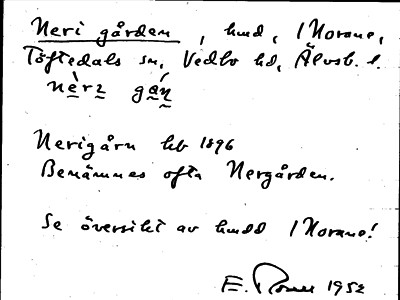 Neri gården, hmd, 1 Norane,
Töftedals sn, Vedbo hd, Älvsb. l.
nè̱rɪ gá̱ɳ
Nerigårn hb 1896
Benämnes ofta Nergården.
Se översikt av hmdd 1 Norane!
E. 1952